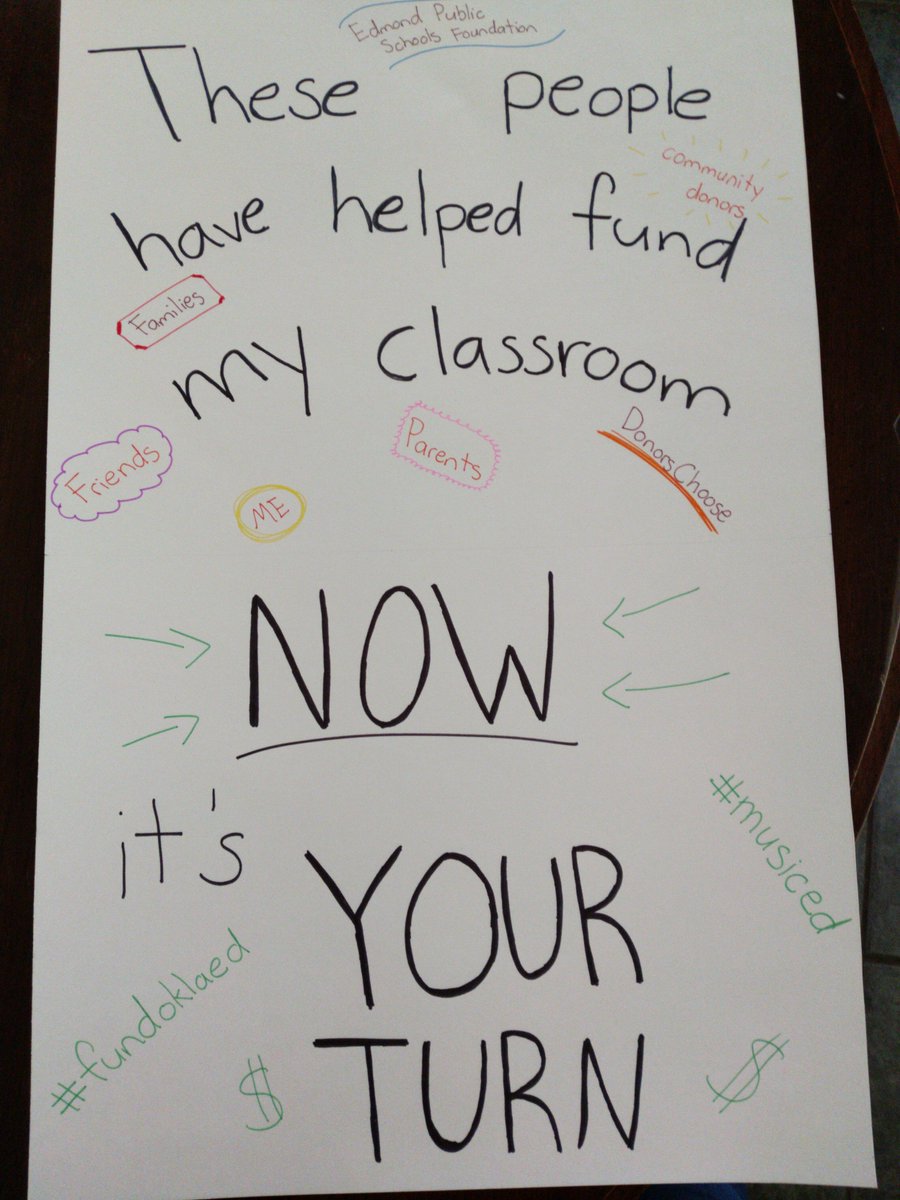 Edmond Public
Schools Foundation
These people
community
donors
have helped fund
Families
my classroom
Friends
ME
Parents
DonorsChoose
NOW
it's
YOUR
#musiced
#fundoklaed
$ TURN $